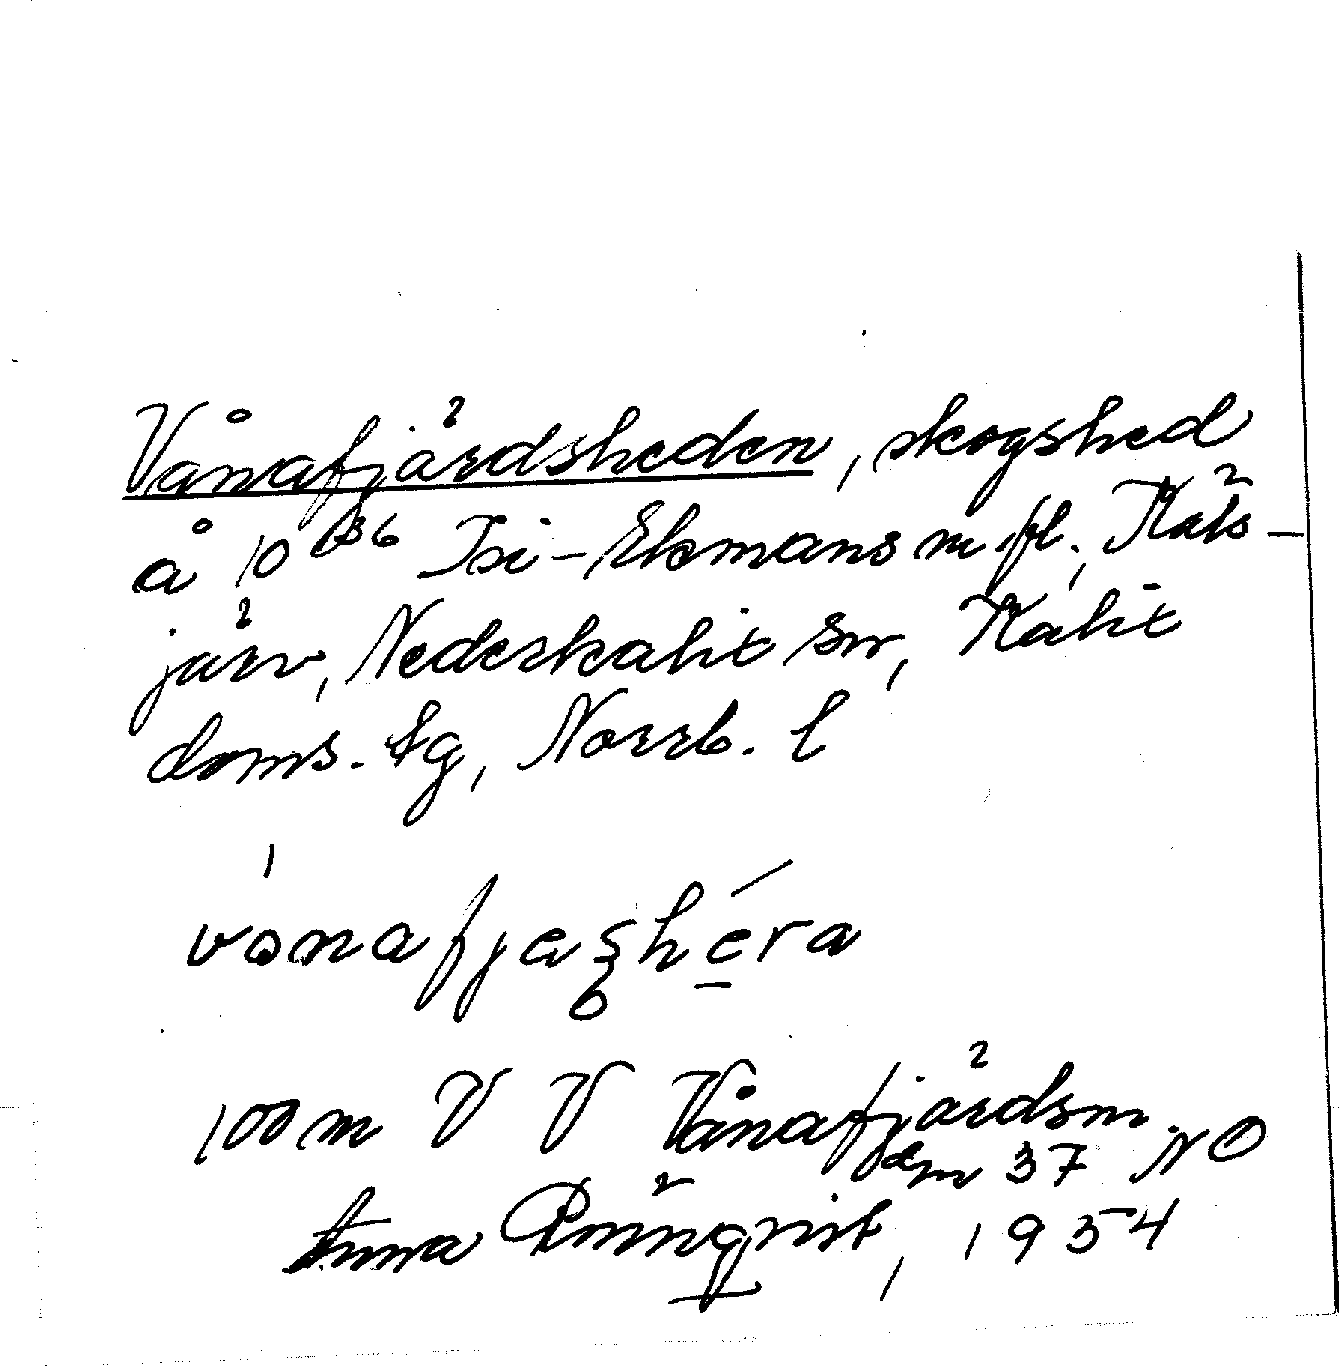 Vånafjärdsheden, skogshed
å 10 36 Isi-Ekmans m.fl., Räks-
järv, Nederkalix sn, Kalix
doms. tg, Norrb. l
vånafjaʂhéra
100 m V V Vånafjärdsm.
dm 37 NO
Anna Rönnqvist, 1954